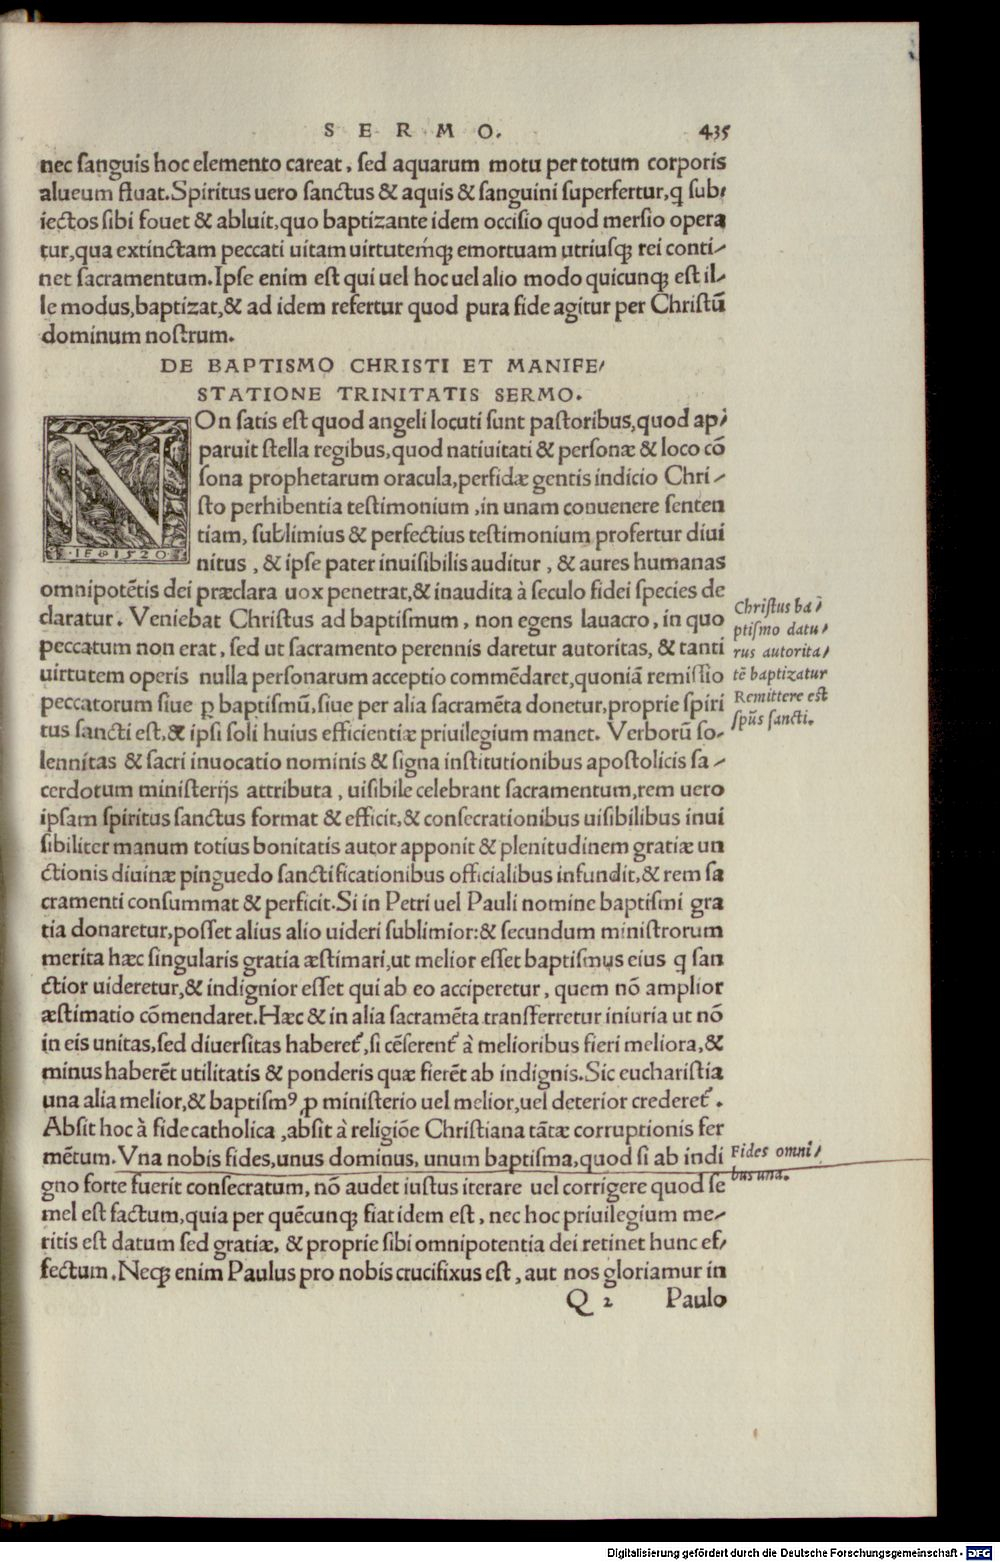 S E R M O.
435
nec sanguis hoc elemento careat, sed aquarum motu per totum corporis
alueum fluat. Spiritus uero sanctus & aquis & sanguini superfertur, q sub-
iectos sibi fouet & abluit, quo baptizante idem occisio quod mersio opera
tur, qua extinctam peccati uitam uirtutemq́ꝫ emortuam utriusqꝫ rei conti-
net sacramentum. Ipse enim est qui uel hoc uel alio modo quicunqꝫ est il-
le modus, baptizat, & ad idem refertur quod pura fide agitur per Christū
dominum nostrum.
DE BAPTISMO CHRISTI ET MANIFE-
STATIONE TRINITATIS SERMO.
NOn satis est quod angeli locuti sunt pastoribus, quod ap-
paruit stella regibus, quod natiuitati & personæ & loco cō
sona prophetarum oracula, perfidæ gentis indicio Chri-
sto perhibentia testimonium, in unam conuenere senten
tiam, sublimius & perfectius testimonium profertur diui
IF 1520
nitus, & ipse pater inuisibilis auditur, & aures humanas
omnipotētis dei præclara uox penetrat, & inaudita à seculo fidei species de
claratur. Veniebat Christus ad baptismum, non egens lauacro, in quo
peccatum non erat, sed ut sacramento perennis daretur autoritas, & tanti
uirtutem operis nulla personarum acceptio commēdaret, quoniā remissio
peccatorum siue ꝑ baptismū, siue per alia sacramēta donetur, proprie spiri
tus sancti est, & ipsi soli huius efficientiæ priuilegium manet. Verborū so-
lennitas & sacri inuocatio nominis & signa institutionibus apostolicis sa-
cerdotum ministerijs attributa, uisibile celebrant sacramentum, rem uero
ipsam spiritus sanctus format & efficit, & consecrationibus uisibilibus inui
sibiliter manum totius bonitatis autor apponit & plenitudinem gratiæ un
ctionis diuinæ pinguedo sanctificationibus officialibus infundit, & rem sa
cramenti consummat & perficit. Si in Petri uel Pauli nomine baptismi gra
tia donaretur, posset alius alio uideri sublimior: & secundum ministrorum
merita hæc singularis gratia æstimari, ut melior esset baptismus eius q san
ctior uideretur, & indignior esset qui ab eo acciperetur, quem nō amplior
æstimatio cōmendaret. Hæc & in alia sacramēta transferretur iniuria ut nō
in eis unitas, sed diuersitas haberet᷑, si cēserent᷑ à melioribus fieri meliora, &
minus haberēt utilitatis & ponderis quæ fierēt ab indignis. Sic eucharistia
una alia melior, & baptismꝰ ꝓ ministerio uel melior, uel deterior crederet᷑.
Absit hoc à fide catholica, absit à religiōe Christiana tātæ corruptionis fer
mētum. Vna nobis fides, unus dominus, unum baptisma, quod si ab indi
gno forte fuerit consecratum, nō audet iustus iterare uel corrigere quod se
mel est factum, quia per quēcunqꝫ fiat idem est, nec hoc priuilegium me-
ritis est datum sed gratiæ, & proprie sibi omnipotentia dei retinet hunc ef-
fectum. Neqꝫ enim Paulus pro nobis crucifixus est, aut nos gloriamur in
Q 2 Paulo
Christus ba-
ptismo datu-
rus autorita-
tē baptizatur
Remittere est
spūs sancti.
Fides omni-
bus una.
Digitalisierung gefördert durch die Deutsche Forschungsgemeinschaft - DFG